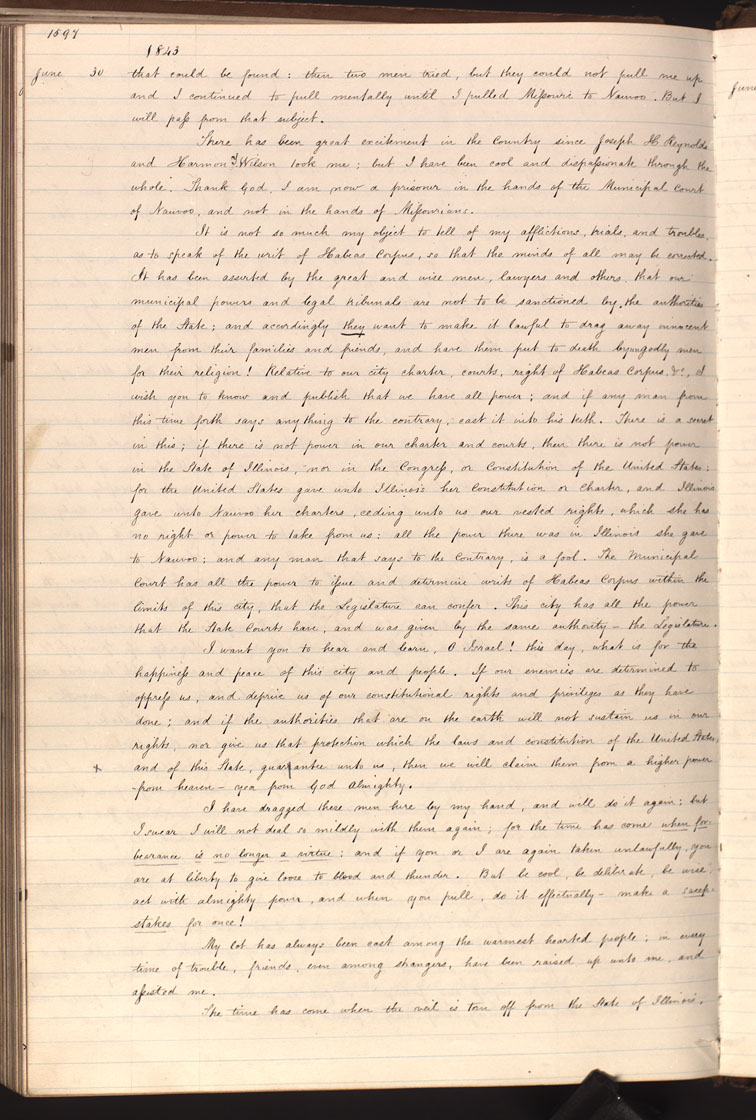 1597
1843
June 30 that could be found: then two men tried, but they could not pull me up
and I continued to pull mentally until I pulled Mißouri to Nauvoo. But I
will paß from that subject.
There has been great excitement in the Country since Joseph H. Reynolds
and Harmon T. Wilson took me; but I have been cool and dispaßionate through the
whole. Thank God, I am now a prisoner in the hands of the Municipal Court
of Nauvoo, and not in the hands of Mißourians.
It is not so much my object to tell of my afflictions, trials, and troubles,
as to speak of the writ of Habeas Corpus, so that the minds of all may be corrected.
It has been asserted by the great and wise men, lawyers and others, that our
municipal powers and legal tribunals are not to be sanctioned by the authorities
of the State; and accordingly they want to make it lawful to drag away innocent
men from their families and friends, and have them put to death by ungodly men
for their religion! Relative to our city charter, courts, right of Habeas Corpus, &c., I
wish you to know and publish that we have all power; and if any man from
this time forth says anything to the contrary, cast it into his teeth. There is a secret
in this; if there is not power in our charter and courts, then there is not power
in the State of Illinois, nor in the Congreß, or Constitution of the United States;
for the United States gave unto Illinois her Constitution or Charter, and Illinois
gave unto Nauvoo her charters, ceding unto us our vested rights, which she has
no right or power to take from us: all the power there was in Illinois she gave
to Nauvoo; and any man that says to the Contrary, is a fool. The Municipal
Court has all the power to ißue and determine writs of Habeas Corpus within the
limits of this city, that the Legislature can confer. This city has all the power
that the State Courts have, and was given by the same authority — the Legislature.
I want you to hear and learn, O Israel! this day, what is for the
happineß and peace of this city and people. If our enemies are determined to
oppreß us, and deprive us of our constitutional rights and privileges as they have
done; and if the authorities that are on the earth will not sustain us in our
rights, nor give us that protection which the laws and constitution of the United States,
x and of this State, guarantee unto us, then we will claim them from a higher power
-from heaven- yea from God Almighty.
I have dragged these men here by my hand, and will do it again; but
I swear I will not deal so mildly with them again; for the time has come when for-
bearance is no longer a virtue: and if you or I are again taken unlawfully, you
are at liberty to give loose to blood and thunder. But be cool, be deliberate, be wise,
act with almighty power, and when you pull, do it effectually - make a sweep-
stakes for once!
My lot has always been cast among the warmest hearted people; in every
time of trouble, friends, even among strangers, have been raised up unto me, and
aßisted me.
The time has come when the veil is torn off from the State of Illinois,
June